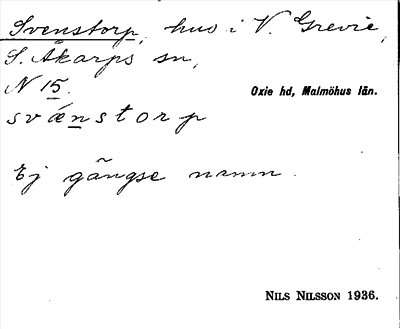 Svenstorp, hus i V. Grevie,
S. Åkarps sn,
N 15.
Oxie hd, Malmöhus län.
svǽnstorp
Ej gängse namn.
NILS NILSSON 1936.